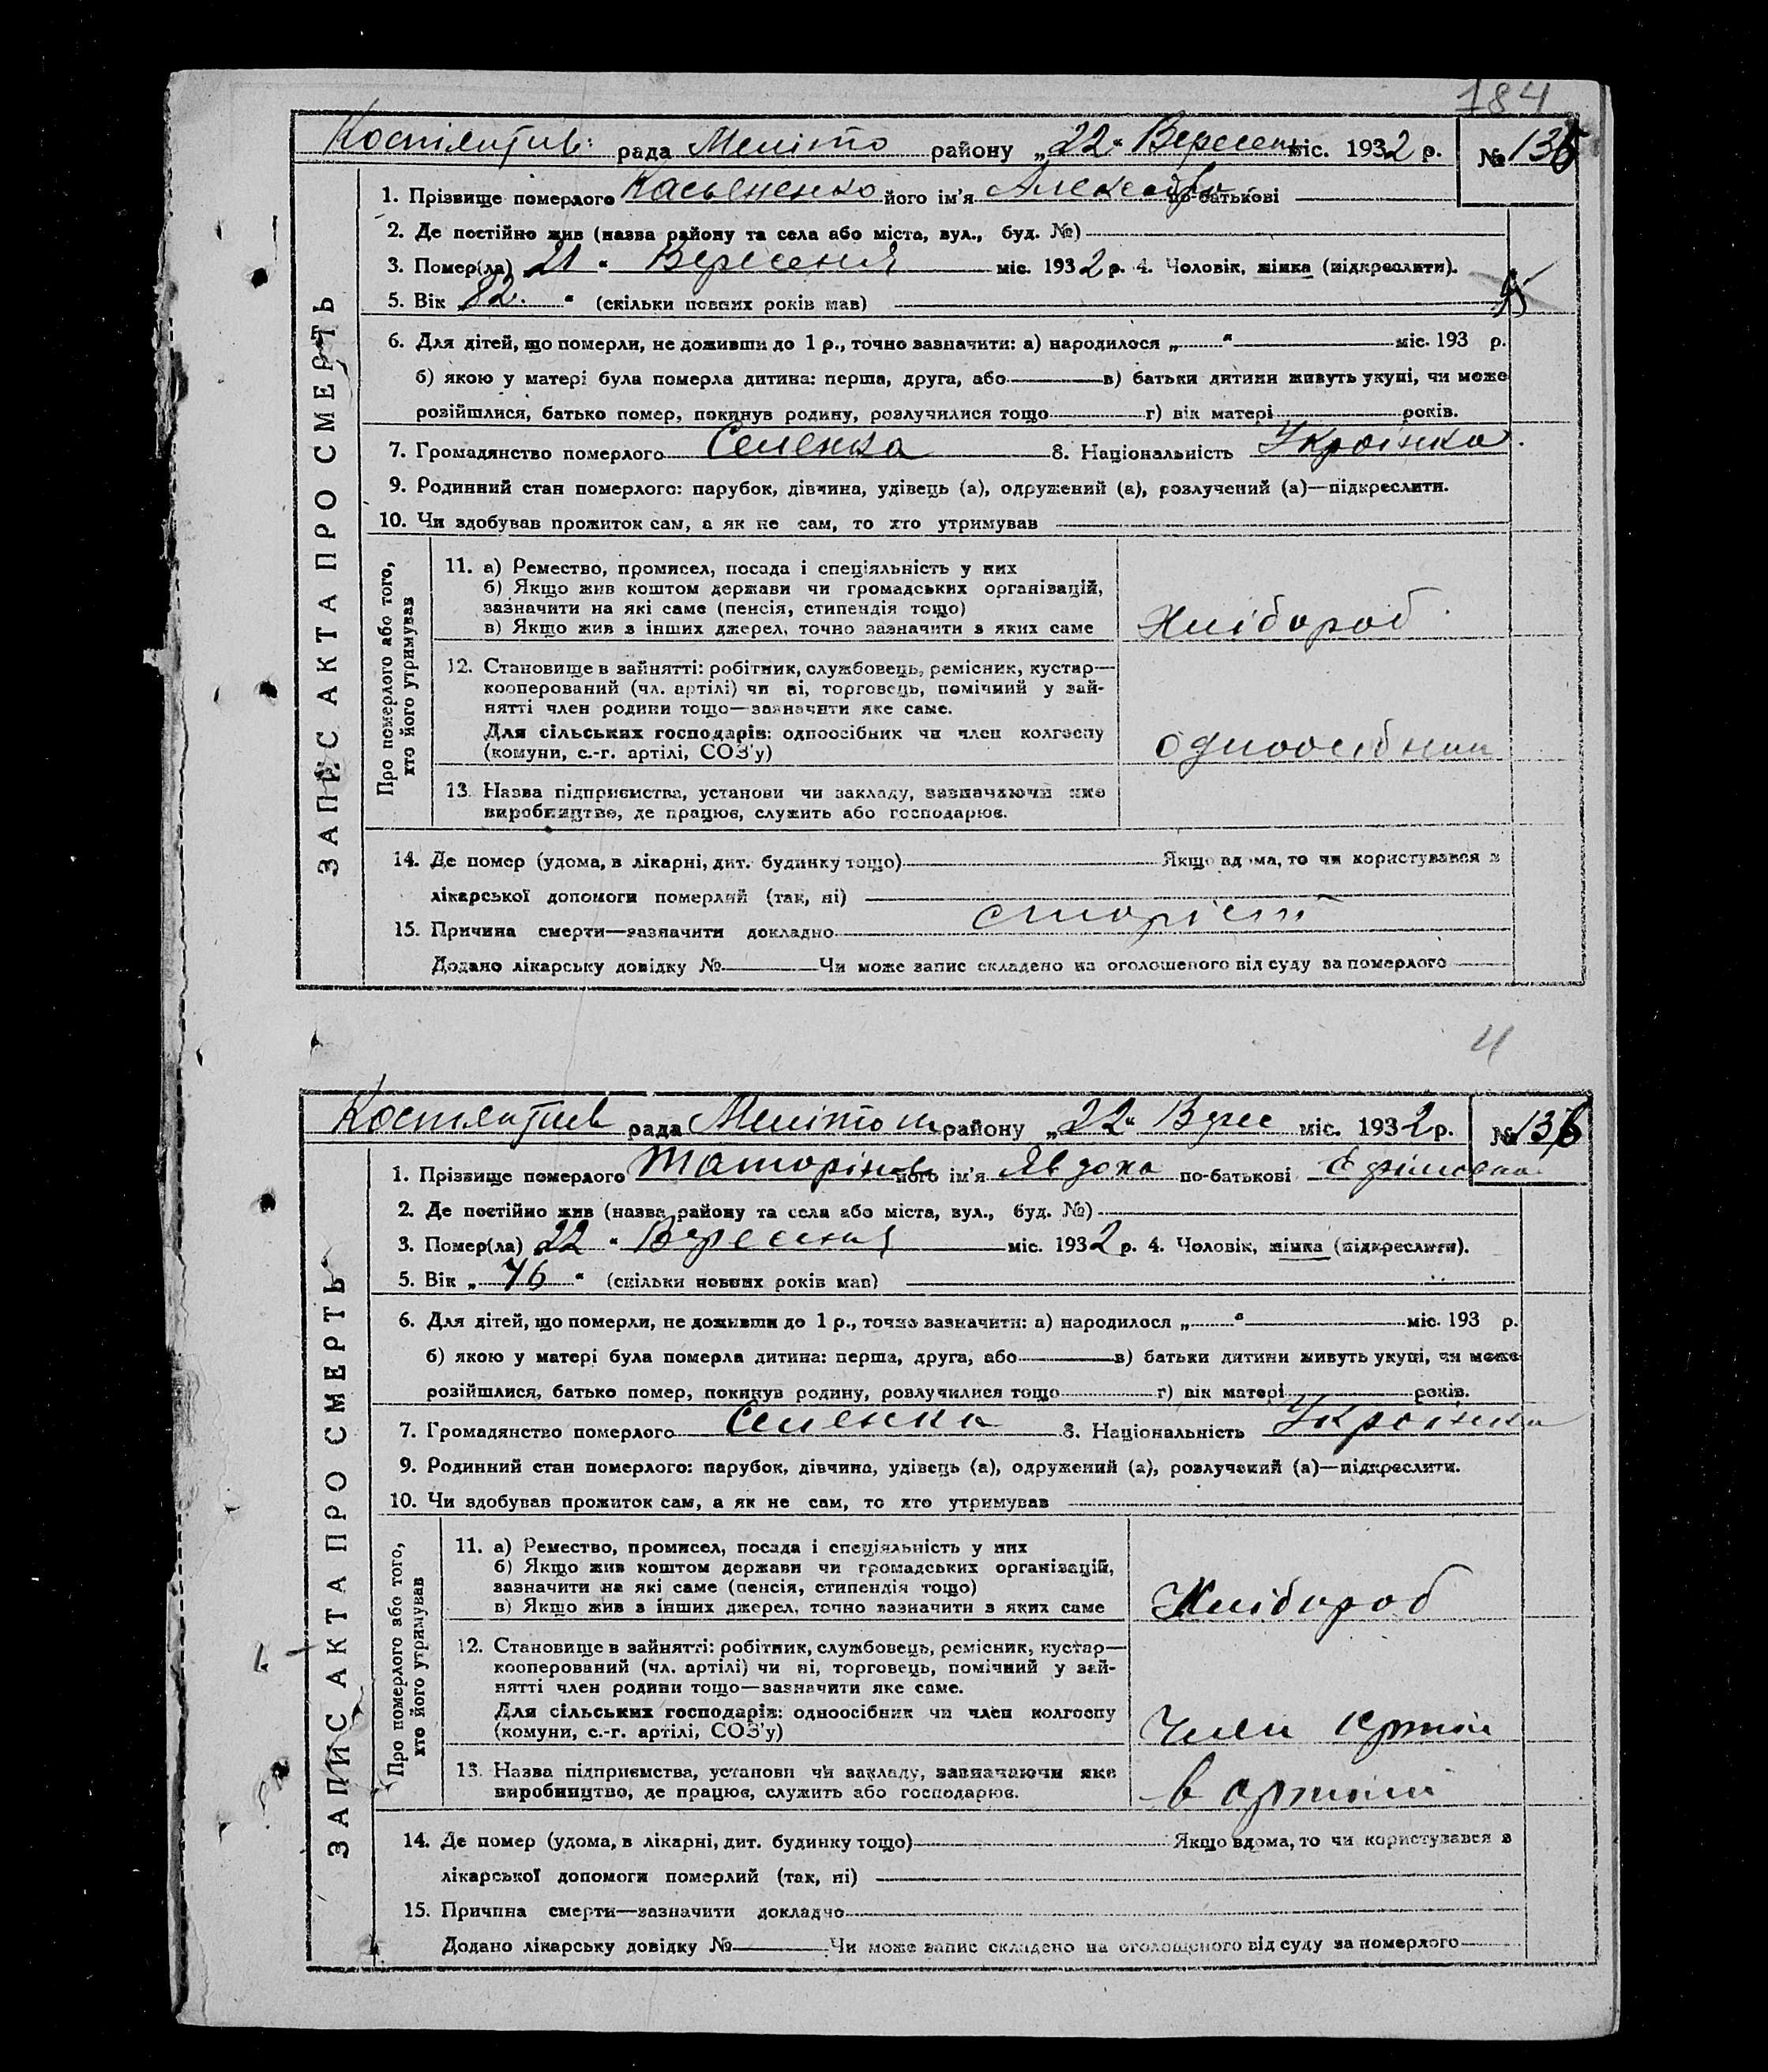 184
Костянтив: рада Меліто району „22“ Вересень міс. 1932 р. № 135
1. Прізвище померлого Касьяненко його ім'я Александр по-батькові
2. Де постійно жив (назва району та села або міста, вул., буд. №)
3. Помер(ла) 21 “ Вересеня міс. 1932 р. 4. Чоловік, жінка (підкреслити).
5. Вік „82.“ (скільки повних років мав)
6. Для дітей, що померли, не доживши до 1 р., точно зазначити: а) народилося „ “ міс. 193 р.
б) якою у матері була померла дитина: перша, друга, або в) батьки дитини живуть укупі, чи може
розійшлися, батько помер, покинув родину, розлучилися тощо г) вік матері років.
7. Громадянство померлого Селенка 8. Національність Українка.
9. Родинний стан померлого: парубок, дівчина, удівець (а), одружений (а), розлучений (а)—підкреслити.
10. Чи здобував прожиток сам, а як не сам, то хто утримував
ЗАПИС АКТА ПРО СМЕРТЬ
Про померлого або того,
хто його утримував
11. а) Ремество, промисел, посада і спеціяльність у них
б) Якщо жив коштом держави чи громадських організацій,
зазначити на які саме (пенсія, стипендія тощо)
в) Якщо жив з інших джерел, точно зазначити з яких саме
Хлібороб
12. Становище в зайнятті: робітник, службовець, ремісник, кустар—
кооперований (чл. артілі) чи ні, торговець, помічний у зай-
нятті член родини тощо—зазначити яке саме.
Для сільських господарів: одноосібник чи член колгоспу
(комуни, с.-г. артілі, СОЗ'у)
одноосібник
13. Назва підприємства, установи чи закладу, зазначаючи яке
виробництво, де працює, служить або господарює.
14. Де помер (удома, в лікарні, дит. будинку тощо) Якщо вдома, то чи користувався з
лікарської допомоги померлий (так, ні)
15. Причина смерти—зазначити докладно старість
Додано лікарську довідку № Чи може запис складено на оголошеного від суду за померлого
4
Костянтив рада Мелітоп району „22“ Верес міс. 1932 р. № 136
1. Прізвище померлого Таторінов його ім'я Явдоха по-батькові Єфімовна
2. Де постійно жив (назва району та села або міста, вул., буд. №)
3. Помер(ла) 22 “ Вересеня міс. 1932 р. 4. Чоловік, жінка (підкреслити).
5. Вік „76“ (скільки повних років мав)
6. Для дітей, що померли, не доживши до 1 р., точно зазначити: а) народилося „ “ міс. 193 р.
б) якою у матері була померла дитина: перша, друга, або в) батьки дитини живуть укупі, чи може
розійшлися, батько помер, покинув родину, розлучилися тощо г) вік матері років.
7. Громадянство померлого Селенка 8. Національність Українка
9. Родинний стан померлого: парубок, дівчина, удівець (а), одружений (а), розлучений (а)—підкреслити.
10. Чи здобував прожиток сам, а як не сам, то хто утримував
ЗАПИС АКТА ПРО СМЕРТЬ
Про померлого або того,
хто його утримував
11. а) Ремество, промисел, посада і спеціяльність у них
б) Якщо жив коштом держави чи громадських організацій,
зазначити на які саме (пенсія, стипендія тощо)
в) Якщо жив з інших джерел, точно зазначити з яких саме
Хлібороб
12. Становище в зайнятті: робітник, службовець, ремісник, кустар—
кооперований (чл. артілі) чи ні, торговець, помічний у зай-
нятті член родини тощо—зазначити яке саме.
Для сільських господарів: одноосібник чи член колгоспу
(комуни, с.-г. артілі, СОЗ'у)
Член артілі
13. Назва підприємства, установи чи закладу, зазначаючи яке
виробництво, де працює, служить або господарює.
в артілі
14. Де помер (удома, в лікарні, дит. будинку тощо) Якщо вдома, то чи користувався з
лікарської допомоги померлий (так, ні)
15. Причина смерти—зазначити докладно
Додано лікарську довідку № Чи може запис складено на оголошеного від суду за померлого